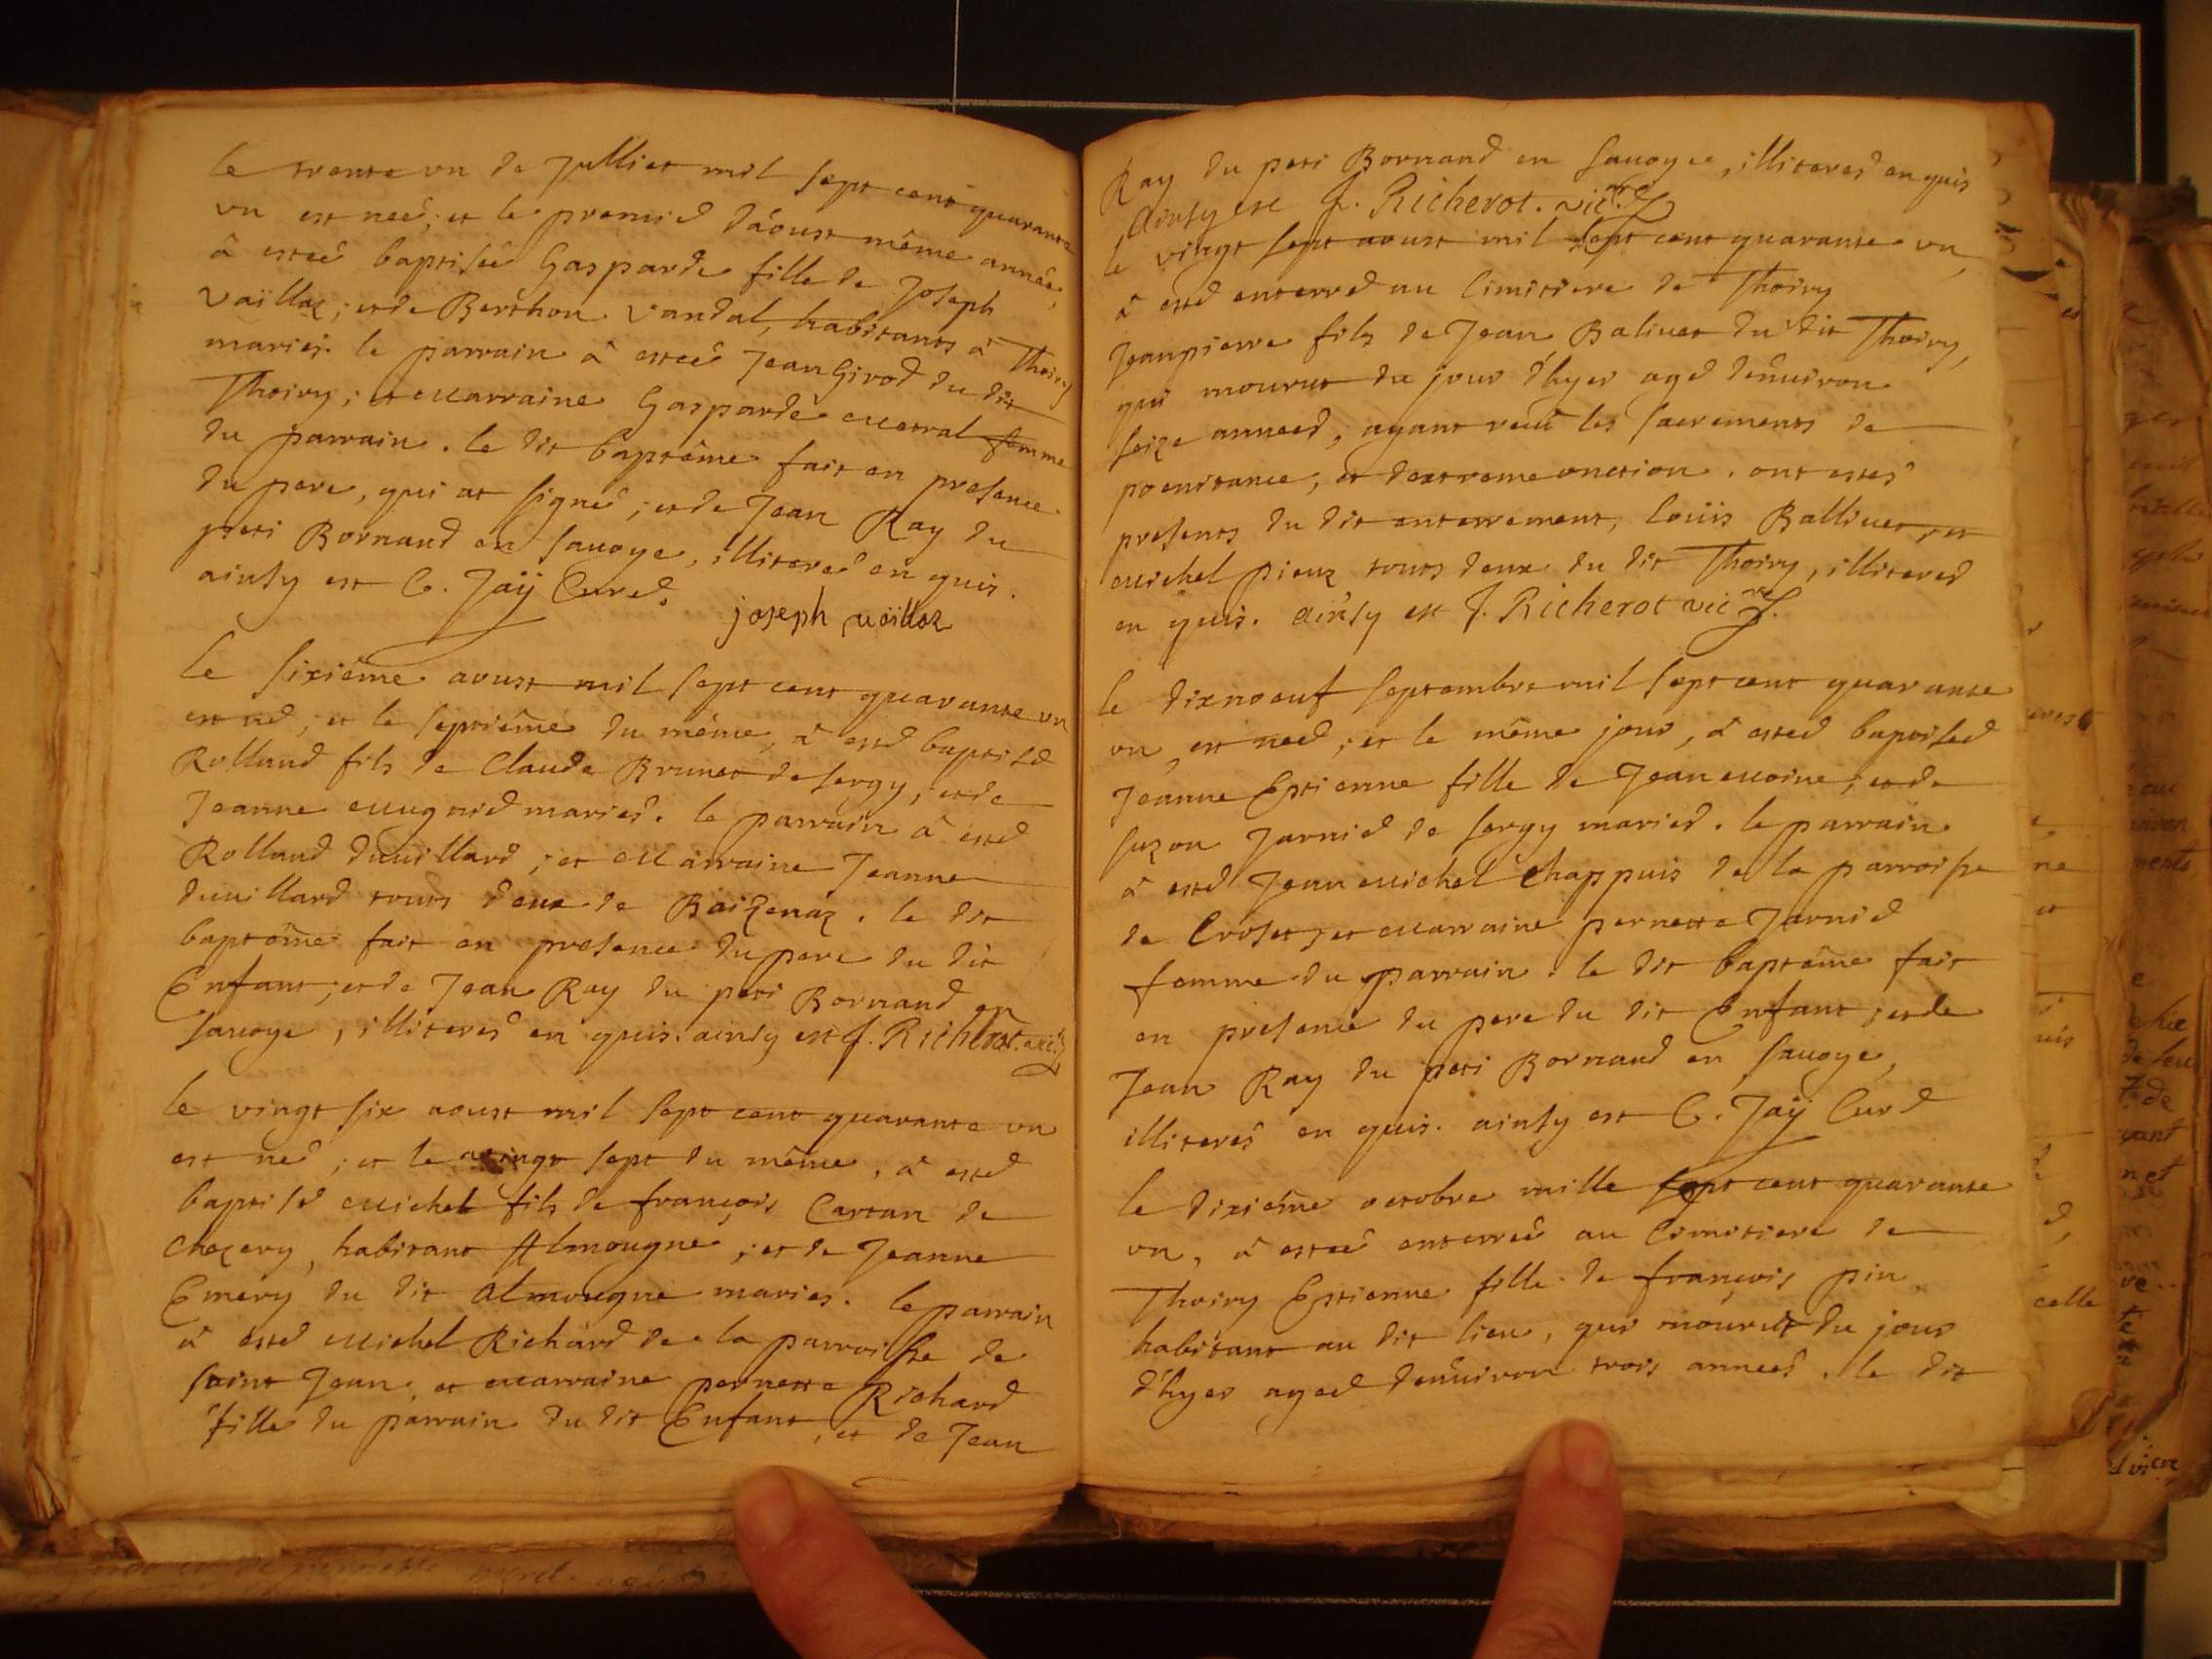 le trente vn de Julliet mil sept cent quarante
vn est neé; et le premié dáoust même année,
â esteé baptisée Gasparde fille de Joseph
Vaïlloz; et de Berthon Vandal, habitants â Thoiry
mariés. le parrain â esteé Jean Girod du dit
Thoiry; et Marraine Gasparde Mestral femme
du parrain. le dit baptême fait en presence
du pere, qui at signé; et de Jean Ray du
peti Bornand en Savoye, illiteré enquis.
ainsy est C. Jaÿ Curé.
joseph vöilloz
Le sixiême aoust mil sept cent quarante vn
est né; et le septiême du même, â esté baptisé
Rolland fils de Claude Brunet de Sergy, et de
Jeanne Mugnié mariés. le parrain â esté
Rolland duvillard; et Marraine Jeanne
duvillard touts deux de Baizenaz. le dit
baptême fait en presence du pere du dit
Enfant; et de Jean Ray du peti Bornand en
Savoye, illiterés en quis. ainsy est J. Richerot. vic.re
le vingt six aoust mil sept cent quarante vn
est né; et le vingt sept du même, â esté
baptisé Michel fils de françois Cartan de
Chezery, habitant Almougne; et de Jeanne
Emery du dit Almougne mariés. le parrain
â esté Michel Richard de la parroisse de
Saint Jean, et Marraine pernette Richard
fille du parrain du dit Enfant, et de Jean
Ray du peti Bornand en Savoye, illiterés en quis
Ainsy est J. Richerot. vic.re
le vingt sept aoust mil sept cent quarante vn,
â esté enterré au Cimitiere de Thoiry
Jeanpierre fils de Jean Balivet du dit Thoiry,
qui mourut du jour d'hyer agé denviron
seize anneés, ayant reçû les sacrements de
poenitance, et dextreme onction. ont estés
presents du dit enterrement, Loüis Ballivet, et
Michel pieuz touts deux du dit Thoiry, illiterés
en quis. ainsy est J. Richerot vic.re
le dixnoeuf septembre mil sept cent quarante
vn, est neé, et le même jour, â esteé baptiseé
Jeanne Estienne fille de Jean Moine; et de
Suzon Jarnié de Sergy mariés. le parrain
â esté Jean Michel Chappuis de la parroisse
de Croset, et Marraine pernette Jarnié
femme du parrain. le dit baptême fait
en presence du pere du dit Enfant; et de
Jean Ray du peti Bornand en Savoye,
illiterés en quis. ainsy est C. Jaÿ Curé
le dixiême octobre mille sept cent quarante
vn, â esteé enterreé au Cimitiere de
Thoiry Estienne fille de françois pin,
habitant au dit lieu, qui mourut du jour
d'hyer ageé denviron trois anneés. le dit